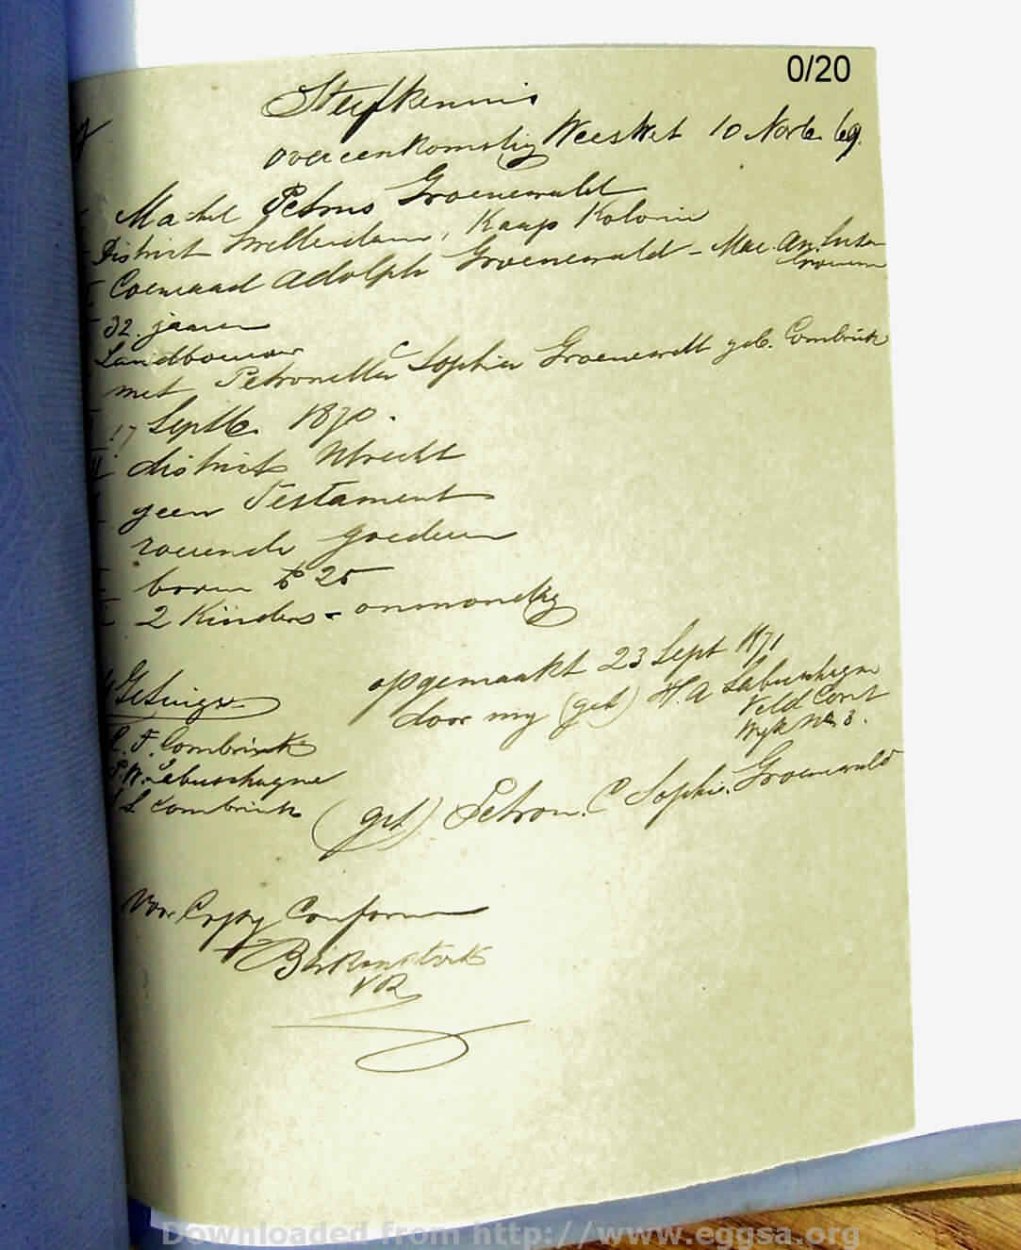 0/20
Sterfkennis
overeenkomstig Weeswet 10 Novb. 69.
Machel Petrus Groenewald
District Swellendam, Kaap Kolonie
Coenraad Adolph Groenewald - Mac. An.
32. jaaren
Landbouwer
met Petronella C Sophia Groenewald geb. Combrink
17 Septb. 1870.
district Utrecht
geen Testament
roerende goederen
boven £ 25
2 Kinders - onmondig
opgemaakt 23 Sept 1871
door my (get) H. A Labuschagne
Veld Cornt
Wyk No 3.
Getuigen
C. F. Combrink
P. W. Labuschagne
L Combrink
(get) Petron. C Sophia. Groenewald
Voor Copy Conform
Birkenstock
VR
Downloaded from http://www.eggsa.org